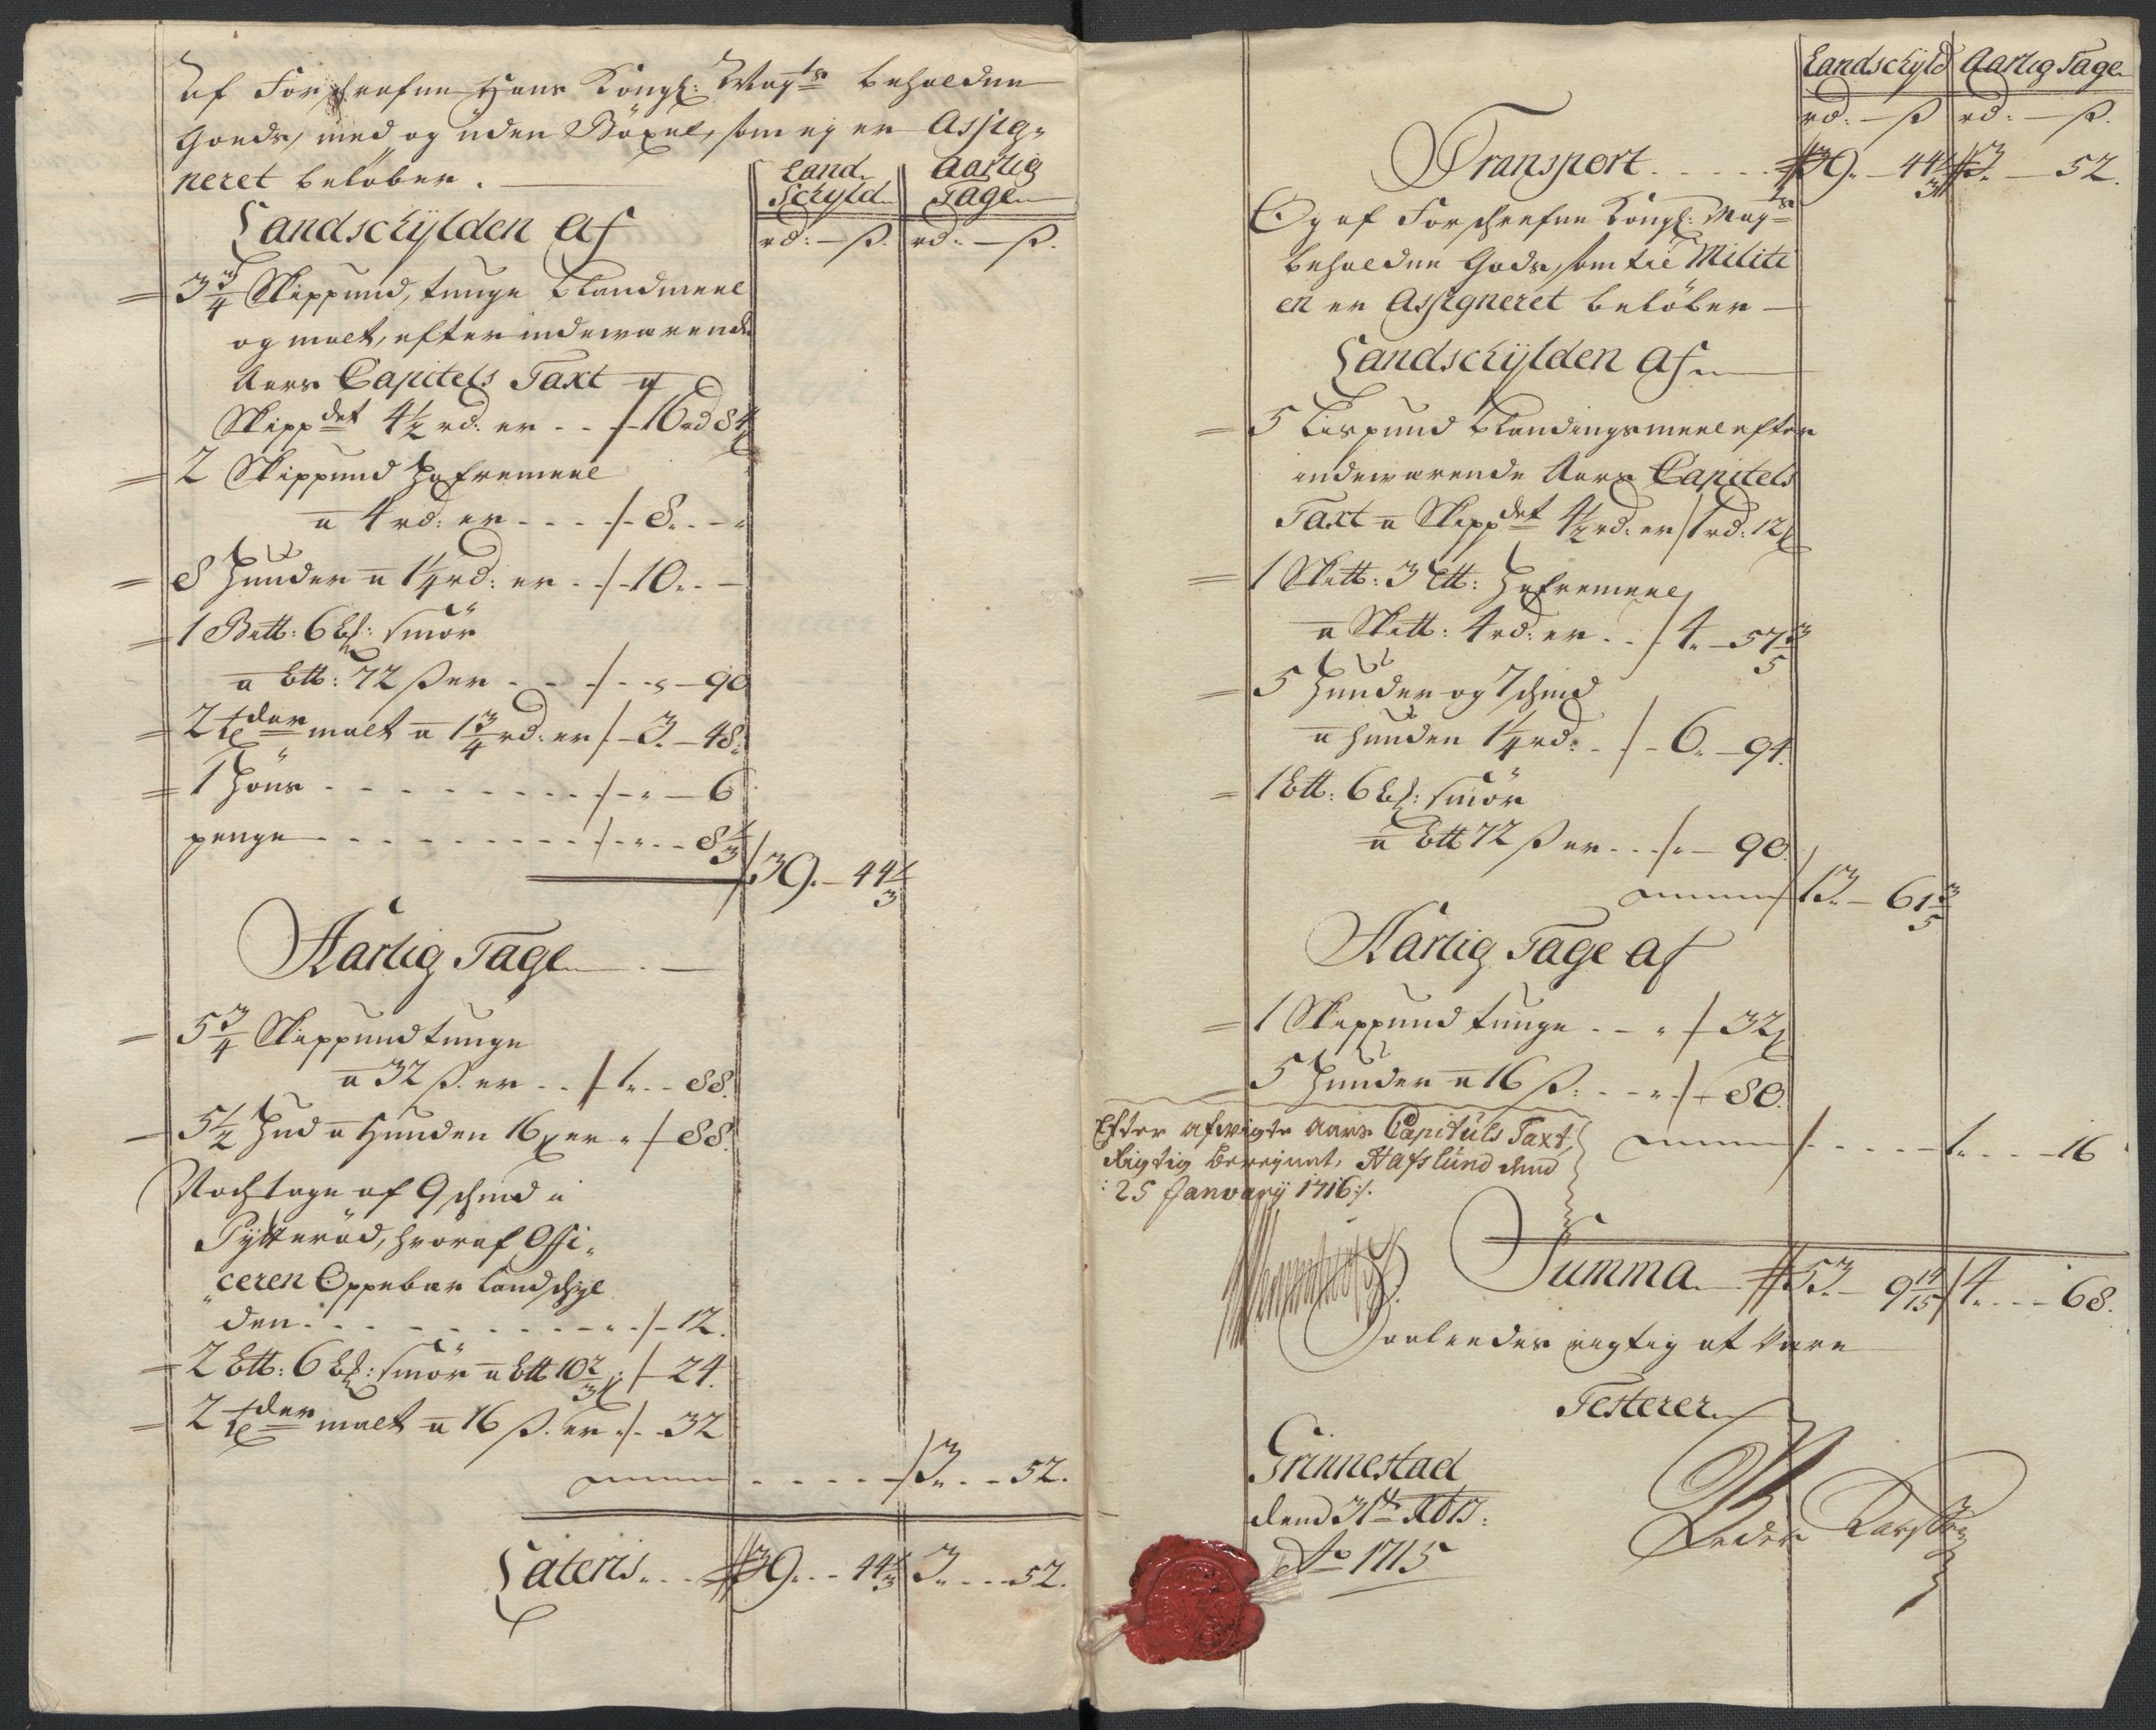 af Forschrefne Hans Kongl: Mayts beholdne
Goeds, med og uden Böxel, som ej er Assig-
neret beløber.
Land-
Schyld
Aarlig
Tage
rd: — ß. rd: — ß.
Landschÿlden Af
3 3/4 Skippund, tunge blandmeel
og malt, efter indeværende
Aars Capitels Taxt a
Skippdet 4 1/2 rd. er . . /-16 rd 84
2 Skippund Hafremeel
a 4 rd: er . . . . /- 8. - -
8 Huuder a 1 1/4 rd: er . . /- 10. . -
1 Bttt: 6 : smør
a btt: 72 ß er . . . /- . " - 90
2 tder malt a 1 3/4 rd. er /- 3. - 48.
1 Høns . . . . . . . /- . " - 6
penge . . . . . . . /- . . . 8 1/3
/39. - 44 1/3
Aarlig Tage
5 3/4 Skippund tunge
a 32 ß. er . . /- 1. . - 88.
5 1/2 Hud a Huuden 16 er " /- 88.
Noch tage af 9 schind i
Pytterød, hvoraf Offi-
ceren Oppebær landschyl
den . . . . . . . . /- 12.
2 btt: 6 : smør a btt 10 2/3 /- 24.
2 tder malt a 16 ß. er /- 32
/3. . . 52.
Lateris . . . 39. . . 44 1/3 3. . . . 52.
Landschyld Aarlig Tage
rd: — ß rd: — ß.
Transport . . . . . 39. - 44 1/3 3. - 52.
Og af Forschrefne Kongl: Mayts
beholdne Gods, som til Militi
en er Assigneret beløber
Landschÿlden Af
5 Lispund blandingsmeel efter
indeværende Aars Capitels
Taxt a Skippdet 4 1/2 rd: er /1 rd: 12
1 Sktt: 3 Ltt: Hafremeel
a Sktt: 4 rd: er . . /- 4. - 57 3/5
5 Huuder og 7 schind
a huuden 1 1/4 rd: . /- 6. - 94.
1 btt: 6 : smør
a btt 72 ß er . . . /. " - 90.
/13. - 61 3/5
Aarlig Tage af
1 Skippund tunge . . " /- 32
5 Huuder a 16 ß: . . " /- 80.
Efter afvigte Aars Capituls Taxt,
Rigtig beregnet, Hafslund dend
25 January 1716 :/.
/- . . . . . 1. . . . 16
Summa 53. - 9 14/15 /4. . . . 68.
Saaledes rigtig at være
Testerer
Grinnestad
dend 31te Xbr:
Ao 1715
Peder Larssen